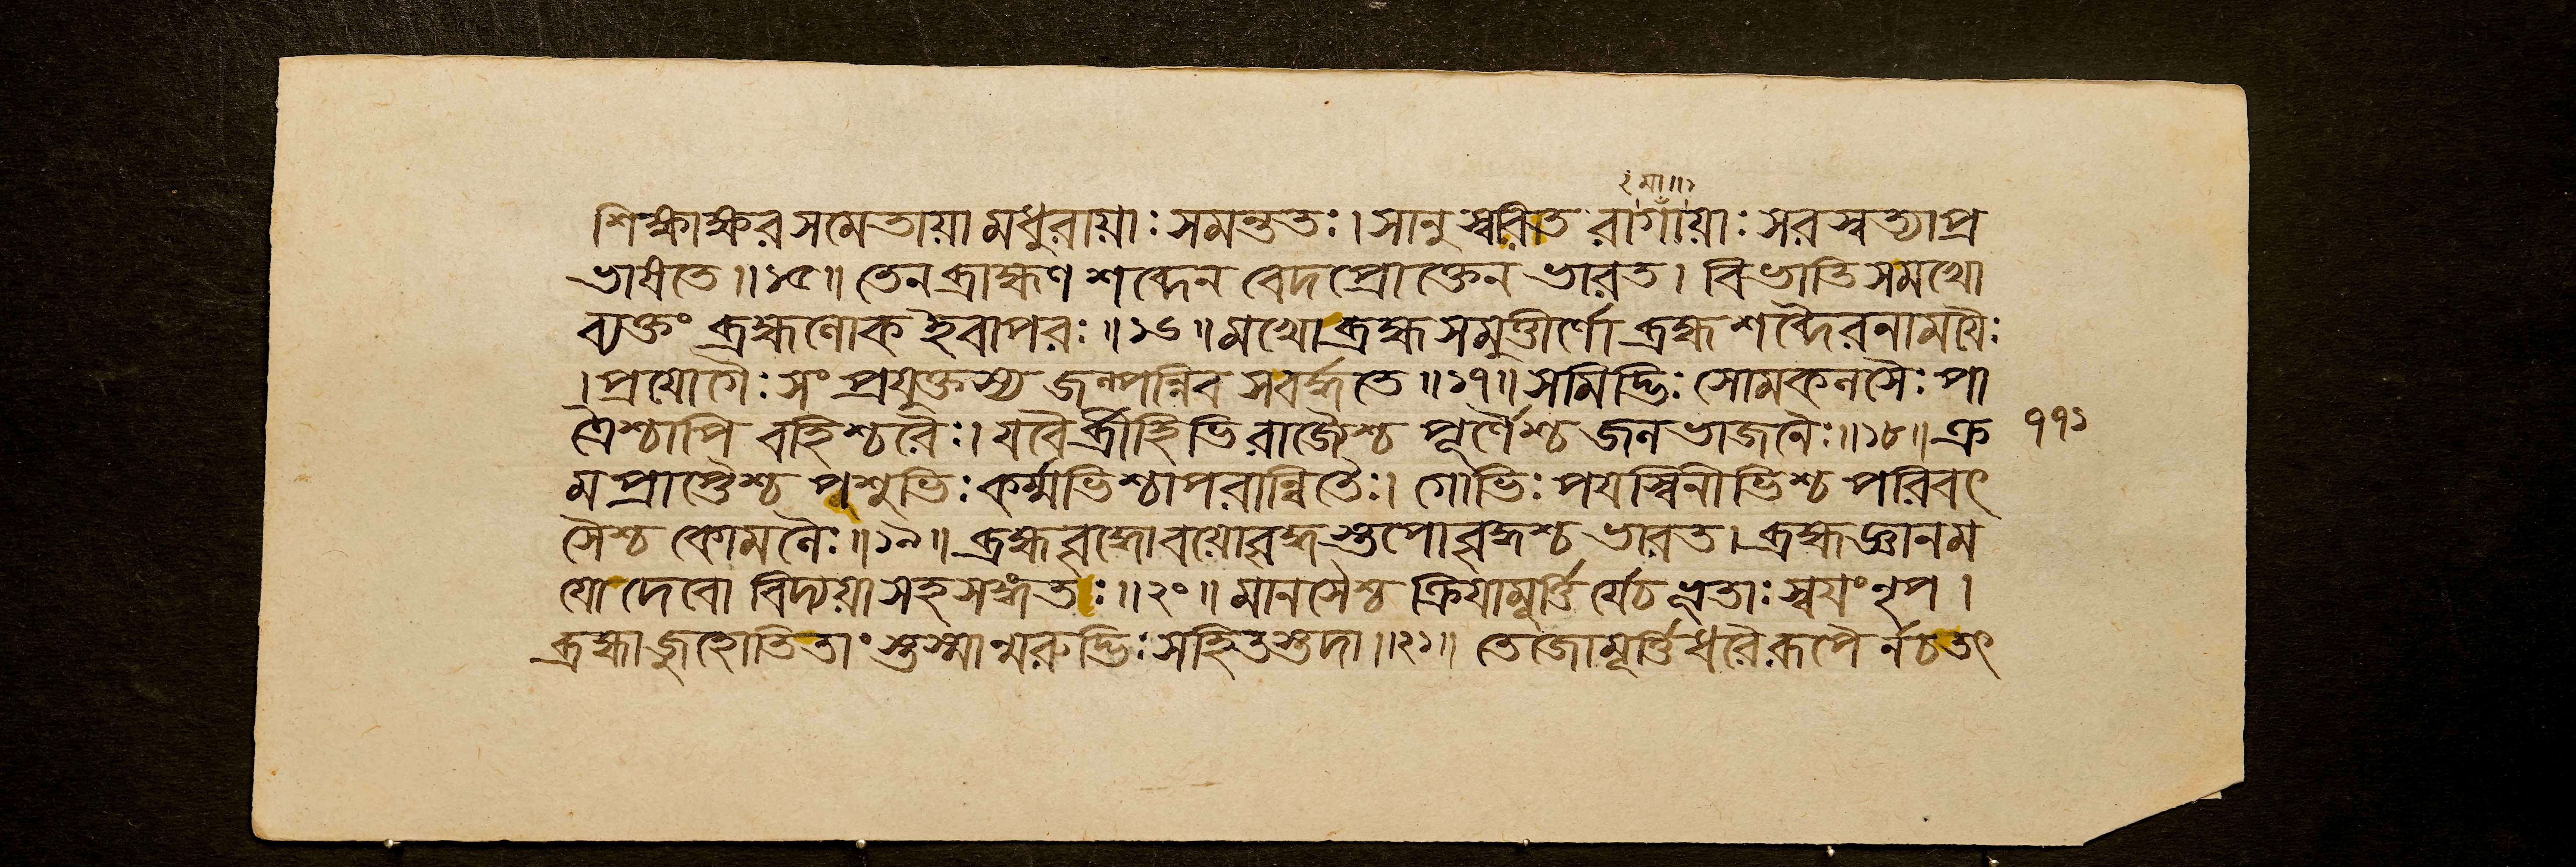 ২ মা॥১
শিক্ষাক্ষরসমেতায়া মধুরায়াঃ সমন্ততঃ। সানুস্বরিত রাগাঁয়াঃ সরস্বত্যা প্র
ভাষতে॥১৫॥ তেন ব্রাহ্মণ শব্দেন বেদপ্রোক্তেন ভারত। বিভাতি সমখো
ব্যক্তং ব্রহ্মলোক ইবাপরঃ॥১৬॥ মখো ব্রহ্মসমুত্তীর্ণো ব্রহ্মশব্দৈরনাময়ৈঃ
। প্রয়োগৈঃ সংপ্রযুক্তস্য জল্পন্নিব সবর্দ্ধতে॥১৭॥ সমিদ্ভিঃ সোমকলসৈঃ পা
ত্রৈশ্চাপি বহিশ্চরৈঃ। যবৈর্ব্রীহিভিরাজ্যৈশ্চ পূর্ণৈশ্চ জলভাজনৈঃ॥১৮॥ ক্র
ম প্রাপ্তৈশ্চ পশুভিঃ কর্ম্মভিশ্চাপরান্বিতৈঃ। গোভিঃ পয়স্বিনীভিশ্চ পরিবৎ
সৈশ্চ কোমলৈঃ॥১৯॥ ব্রহ্মবৃদ্ধোবয়োবৃদ্ধস্তপোবৃদ্ধশ্চ ভারত। ব্রহ্মজ্ঞানম
য়ো দেবো বিদ্যয়া সহ সংবৃতঃ॥২০॥ মানসৈশ্চ ক্রিয়ামূর্ত্তি র্যেচ বৃতাঃ স্বয়ং নৃপ।
ব্রহ্মা জুহোতি তাংস্তস্মান্মরুদ্ভিঃ সহিতস্তদা॥২১॥ তেজোমূর্ত্তিধরৈ রূপৈ র্নচ তৎ
৭৭১